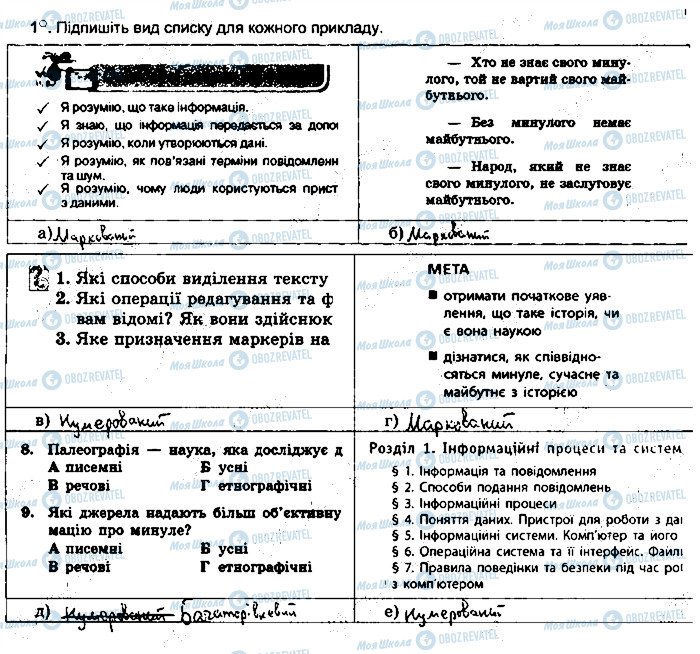 1°. Підпишіть вид списку для кожного прикладу.
✓ Я розумію, що таке інформація.
✓ Я знаю, що інформація передається за допо
✓ Я розумію, коли утворюються дані.
✓ Я розумію, як пов'язані терміни повідомленн
та шум.
✓ Я розумію, чому люди користуються прист
з даними.
а) Маркований
— Хто не знає свого мину-
лого, той не вартий свого май-
бутнього.
— Без минулого немає
майбутнього.
— Народ, який не знає
свого минулого, не заслуговує
майбутнього.
б) Маркований
1. Які способи виділення тексту
2. Які операції редагування та ф
вам відомі? Як вони здійснюк
3. Яке призначення маркерів на
в) Нумерований
МЕТА
■ отримати початкове уяв-
лення, що таке історія, чи
є вона наукою
■ дізнатися, як співвідно-
сяться минуле, сучасне та
майбутнє з історією
г) Маркований
8. Палеографія — наука, яка досліджує д
А писемні Б усні
В речові Г етнографічні
9. Які джерела надають більш об'єктивну
мацію про минуле?
А писемні Б усні
В речові Г етнографічні
д) Нумерований Багаторівневий
Розділ 1. Інформаційні процеси та систем
§ 1. Інформація та повідомлення
§ 2. Способи подання повідомлень
§ 3. Інформаційні процеси
§ 4. Поняття даних. Пристрої для роботи з даı
§ 5. Інформаційні системи. Комп'ютер та його
§ 6. Операційна система та її інтерфейс. Файлı
§ 7. Правила поведінки та безпеки під час роı
з комп'ютером
е) Нумерований